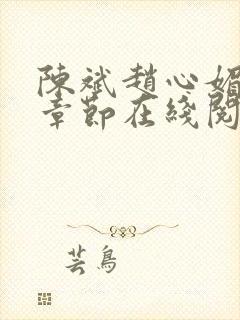 陳斌趙心媚
章節在綫閱
芸鳥